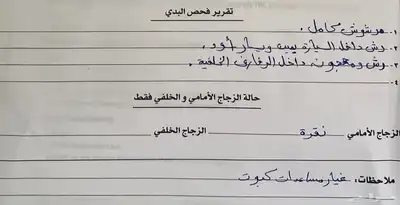 تقرير فحص البدي
١. مرشوش كامل.
٢. رش داخل السيارة يمين ويسار أسود.
٣. رش ومعجون داخل الرفارف الخلفية.
٤.
حالة الزجاج الأمامي و الخلفي فقط
الزجاج الأمامي نقرة الزجاج الخلفي
ملاحظات: غيار مساعدات كبوت